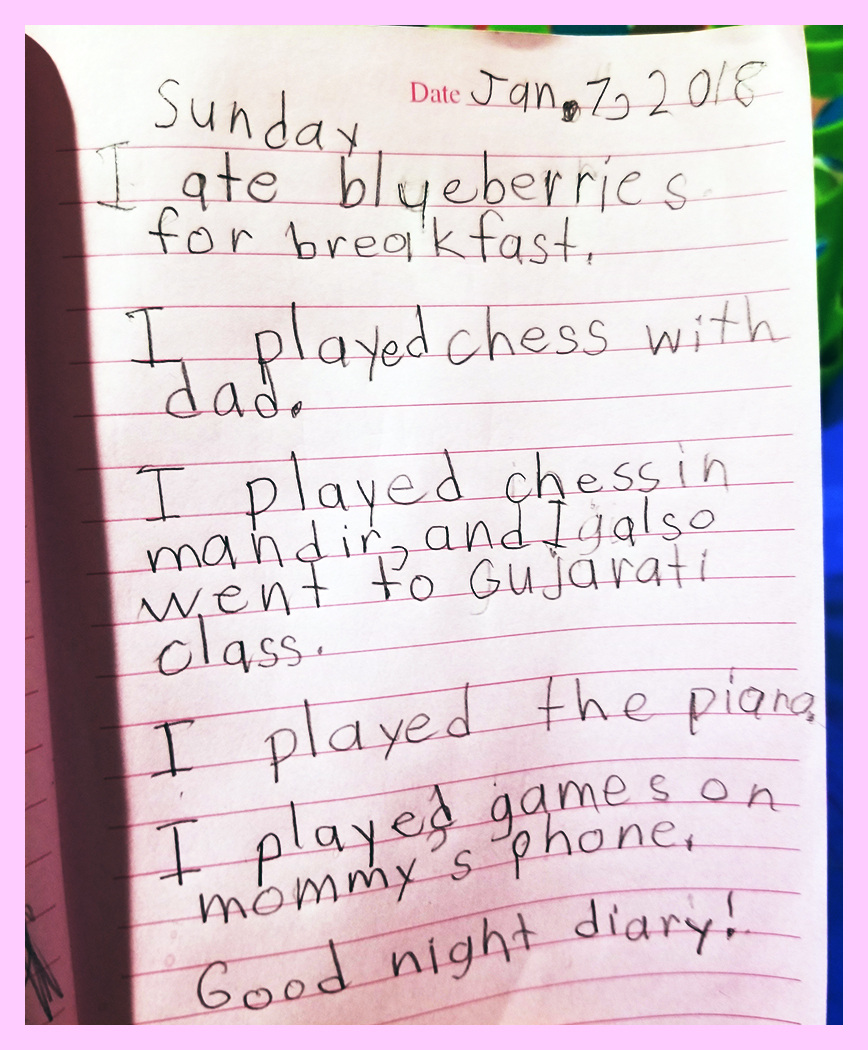 Date Jan. 7, 2018
Sunday
I ate blyeberries
for breakfast.
I played chess with
dad.
I played chess in
mandir, and I also
went to Gujarati
class.
I played the piano.
I played games on
mommy's phone.
Good night diary!